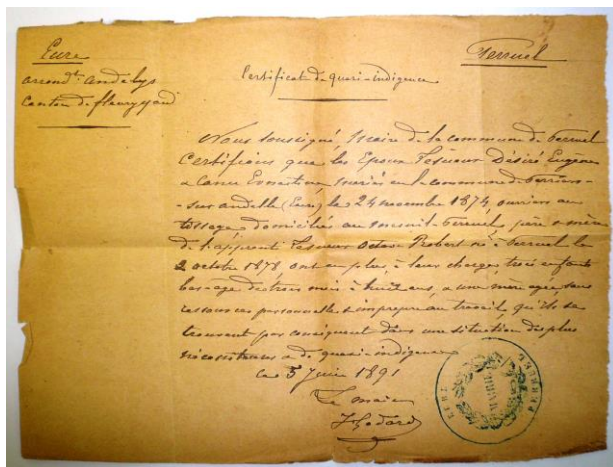 Eure
arrond.t andelys
Canton de fleury s/and
Perruel
Certificat de quasi-indigence
Nous soussigné, Maire de la commune de Perruel
Certifions que les Epoux Lesueur Désiré Eugène
& Canu Ernestine, mariés en la commune de Perriers-
-sur andelle (Eure) le 24 novembre 1874, ouvriers au
tissage, domiciliés au mesnil Perruel, père & mère
de l'apprenti Lesueur Octave Robert né à Perruel le
2 octobre 1878, ont en plus, à leur charge, trois enfants
bas-age de trois mois à huit ans, & une mère agée, sans
ressources personnelles & impropre au travail, qu'ils se
trouvent par conséquent dans une situation des plus
nécessiteuses & de quasi-indigence
ce 5 Juin 1891
Le maire
Godard
MAIRIE
EURE